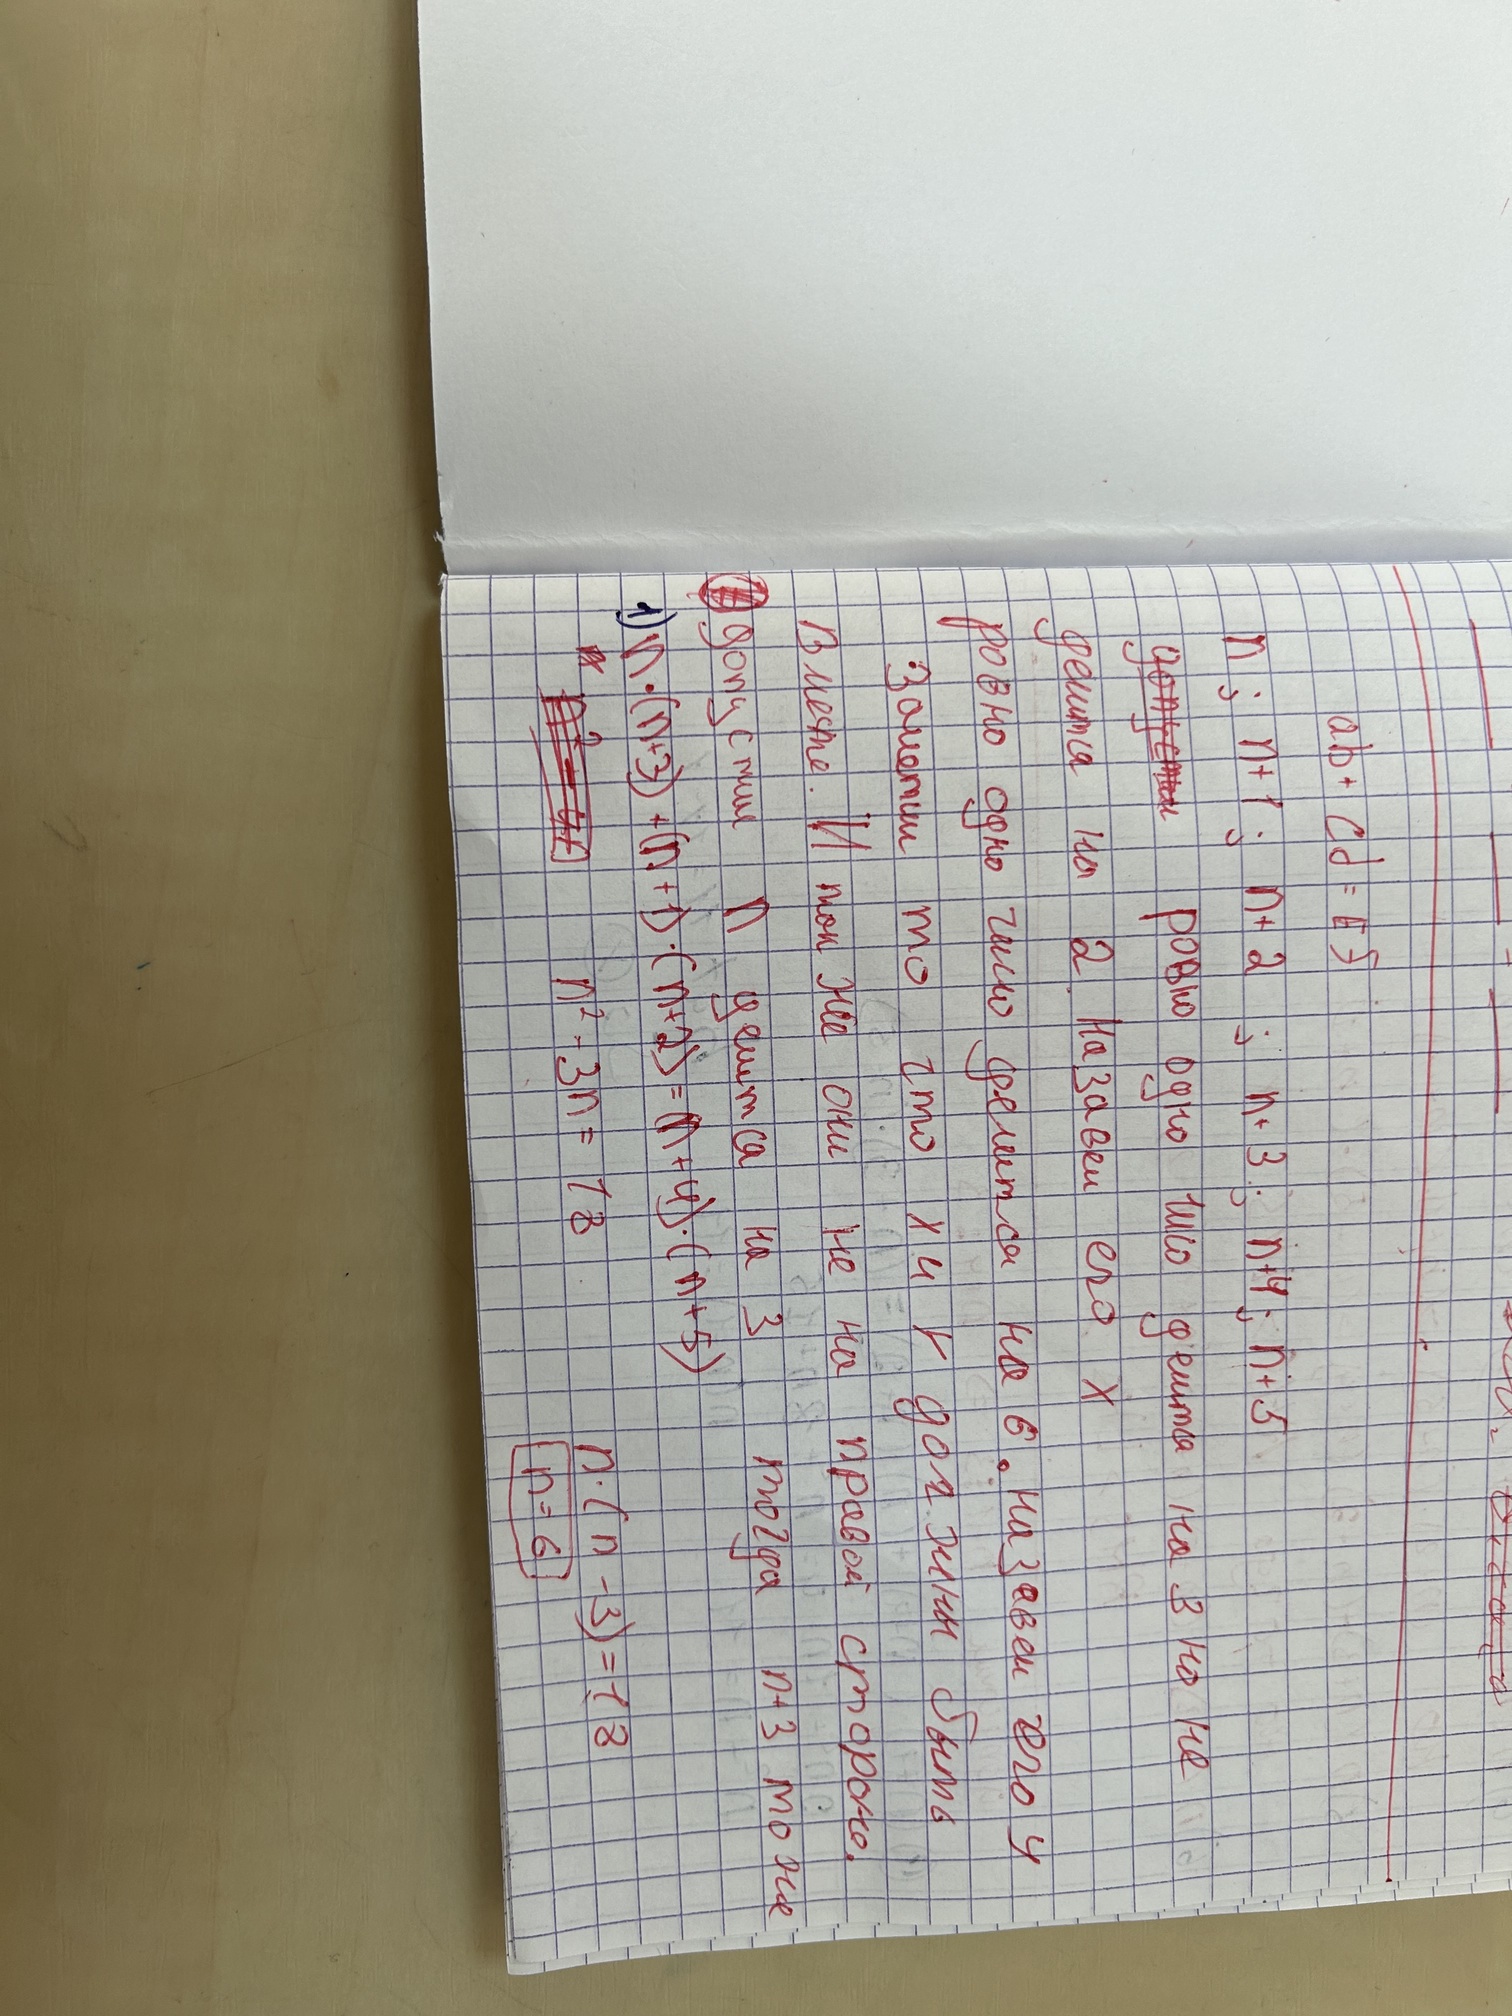 ab + cd = ef
n; n+1; n+2; n+3; n+4; n+5
ровно одно число делится на 3 но не
делится на 2. Назавем его x
ровно одно число делится на 6. Назавем его y
Заметим то что x и y должны быть
вместе. И так же они не на правой стороне.
допустим n делится на 3 тогда n+3 тоже
1) n·(n+3)+(n+1)·(n+2)=(n+4)·(n+5)
n² - 3n = 18 n·(n-3)=18
n=6